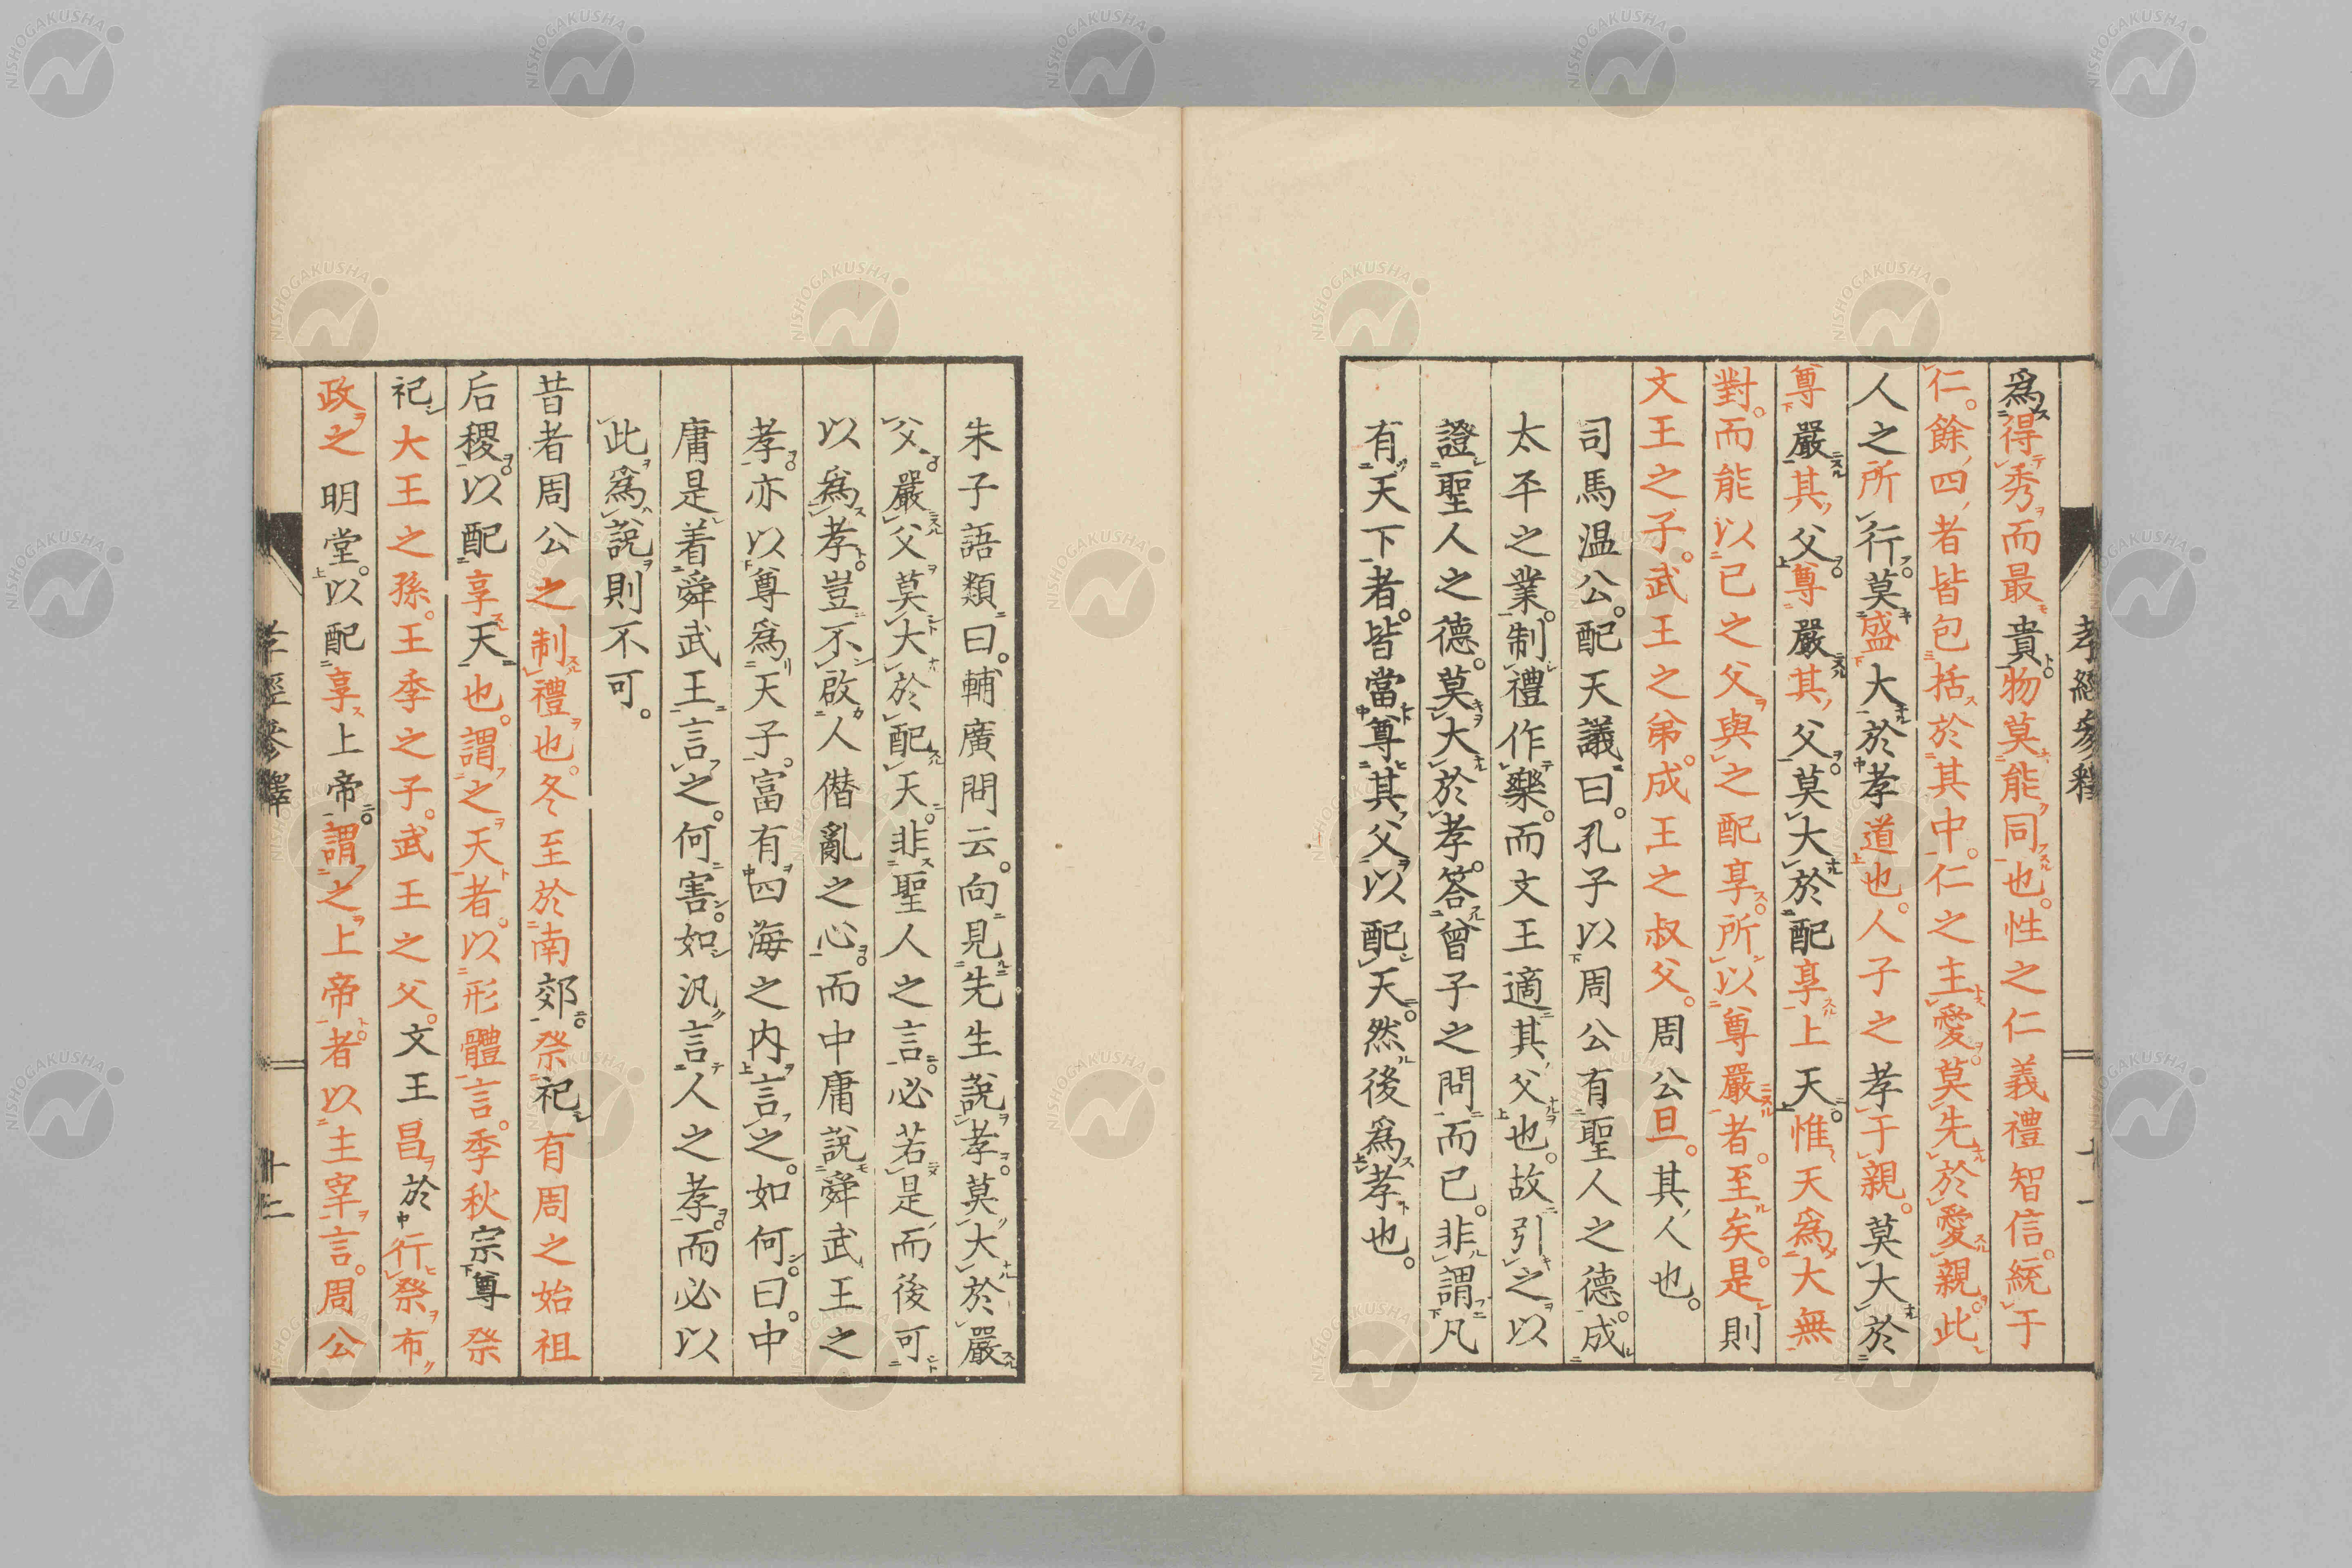 孝經參釋
爲得秀而最貴物莫能同也。性之仁義禮智信。統于
仁。餘四者皆包括於其中。仁之主愛莫先於愛親。此
人之所行莫盛大於孝道也。人子之孝于親。莫大於
尊嚴其父尊嚴其父。莫大於配享上天。惟天爲大無
對。而能以已之父與之配享。所以尊嚴者。至矣。是則
文王之子。武王之弟。成王之叔父。周公旦。其人也。
司馬温公。配天議曰。孔子以周公有聖人之德。成
太平之業。制禮作樂。而文王適其父也。故引之以
證聖人之德。莫大於孝。答曾子之問而已。非謂凡
有天下者。皆當尊其父以配天。然後爲孝也。
朱子語類曰。輔廣問云。向見先生說孝莫大於嚴
父。嚴父莫大於配天。非聖人之言。必若是而後可
以爲孝。豈不啟人僭亂之心。而中庸說舜武王之
孝。亦以尊爲天子。富有四海之内言之。如何。曰。中
庸是着舜武王言之。何害。如汎言人之孝。而必以
此爲說則不可。
昔者周公之制禮也。冬至於南郊。祭祀有周之始祖
后稷。以配享天也。謂之天者。以形體言。季秋宗尊祭
祀大王之孫。王季之子。武王之父。文王昌於行祭布
政之明堂。以配享上帝。謂之上帝者。以主宰言。周公
孝經參釋
十二
NISHOGAKUSHA